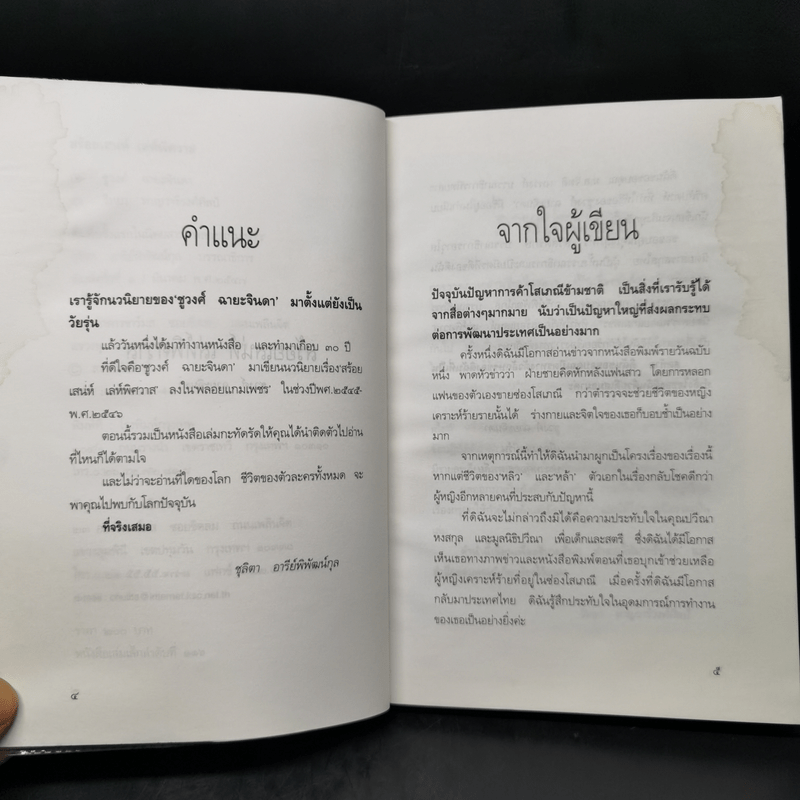 คำแนะ
เรารู้จักนวนิยายของ'ชูวงศ์ ฉายะจินดา' มาตั้งแต่ยังเป็น
วัยรุ่น
แล้ววันหนึ่งได้มาทำงานหนังสือ และทำมาเกือบ ๓๐ ปี
ที่ดีใจคือ'ชูวงศ์ ฉายะจินดา' มาเขียนนวนิยายเรื่อง'สร้อย
เสน่ห์ เล่ห์พิศวาส' ลงใน'พลอยแกมเพชร' ในช่วงปีพ.ศ.๒๕๔๕-
พ.ศ.๒๕๔๖
ตอนนี้รวมเป็นหนังสือเล่มกะทัดรัดให้คุณได้นำติดตัวไปอ่าน
ที่ไหนก็ได้ตามใจ
และไม่ว่าจะอ่านที่ใดของโลก ชีวิตของตัวละครทั้งหมด จะ
พาคุณไปพบกับโลกปัจจุบัน
ที่จริงเสมอ
ชุลิตา อารีย์พิพัฒน์กุล
๔
จากใจผู้เขียน
ปัจจุบันปัญหาการค้าโสเภณีข้ามชาติ เป็นสิ่งที่เรารับรู้ได้
จากสื่อต่างๆมากมาย นับว่าเป็นปัญหาใหญ่ที่ส่งผลกระทบ
ต่อการพัฒนาประเทศเป็นอย่างมาก
ครั้งหนึ่งดิฉันมีโอกาสอ่านข่าวจากหนังสือพิมพ์รายวันฉบับ
หนึ่ง พาดหัวข่าวว่า ฝ่ายชายคิดหักหลังแฟนสาว โดยการหลอก
แฟนของตัวเองขายซ่องโสเภณี กว่าตำรวจจะช่วยชีวิตของหญิง
เคราะห์ร้ายรายนั้นได้ ร่างกายและจิตใจของเธอก็บอบช้ำเป็นอย่าง
มาก
จากเหตุการณ์นี้ทำให้ดิฉันนำมาผูกเป็นโครงเรื่องของเรื่องนี้
หากแต่ชีวิตของ'หลิว' และ'หล้า' ตัวเอกในเรื่องกลับโชคดีกว่า
ผู้หญิงอีกหลายคนที่ประสบกับปัญหานี้
ที่ดิฉันจะไม่กล่าวถึงมิได้คือความประทับใจในคุณปวีณา
หงสกุล และมูลนิธิปวีณา เพื่อเด็กและสตรี ซึ่งดิฉันได้มีโอกาส
เห็นเธอทางภาพข่าวและหนังสือพิมพ์ตอนที่เธอบุกเข้าช่วยเหลือ
ผู้หญิงเคราะห์ร้ายที่อยู่ในซ่องโสเภณี เมื่อครั้งที่ดิฉันมีโอกาส
กลับมาประเทศไทย ดิฉันรู้สึกประทับใจในอุดมการณ์การทำงาน
ของเธอเป็นอย่างยิ่งค่ะ
๕